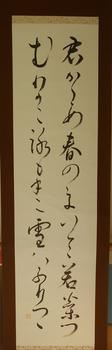 君かため春のゝにいてゝ若菜つ
むわかころもてに雪ハふりつゝ